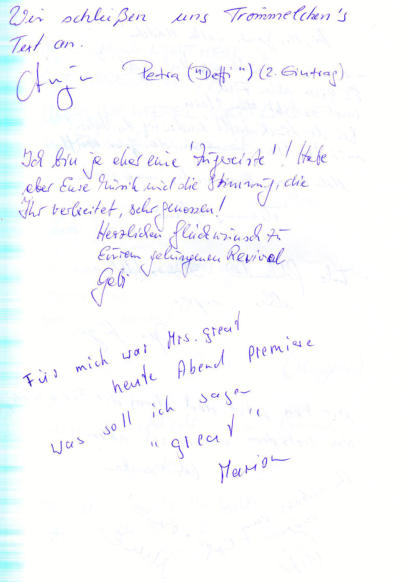 Wir schließen uns Trommelchen's
Text an.
Anja Petra ("Deffi") (2. Eintrag)
Ich bin ja eher eine 'Zugereiste'! Habe
aber Eure Musik und die Stimmung, die
Ihr verbreitet, sehr genossen!
Herzlichen Glückwunsch zu
Eurem gelungenen Revival
Gabi
Für mich war Mrs. great
heute Abend Premiere
was soll ich sagen
"great"
Marion